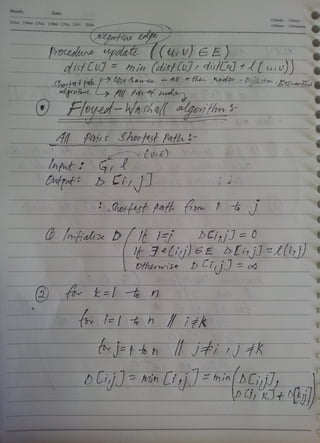 Month. Date.
(negative edge)
Procedure update ((u,v) ∈ E)
dist[v] = min (dist[v], dist[u] + l(u,v))
Shortest path → one source - all other nodes - Dijkstra
algorithm → All pair of nodes
Floyed-Warshall algorithm:-
All Pairs Shortest Path:-
(V,E)
Input: G, l
Output: D[i,j]
: Shortest path from i to j
① Initialize D ( If i=j D[i,j] = 0
If ∃ e(i,j) ∈ E D[i,j] = l(i,j)
otherwise D[i,j] = ∞
② for k=1 to n
for i=1 to n // i≠k
for j=1 to n // j≠i, j≠k
D[i,j] = min [i,j] = min(D[i,j],
D[i,k] + D[k,j])